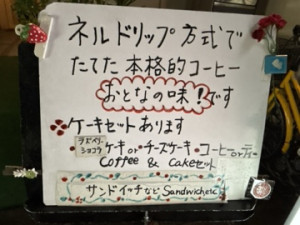 ネルドリップ方式で
たてた本格的コーヒー
おとなの味！です
ケーキセットあります
ショコラ ケーキ or チーズケーキ・コーヒー or ティー
Coffee & Cakeセット
サンドイッチなど Sandwich etc